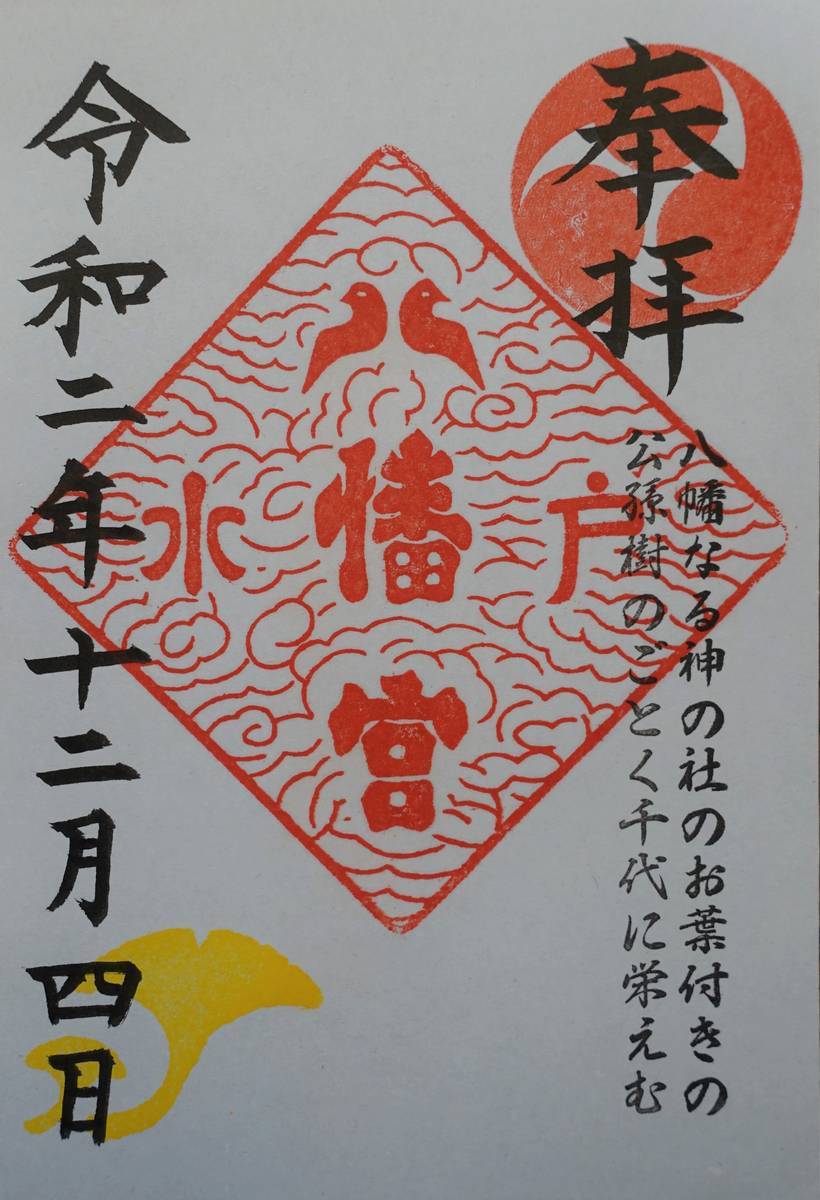 奉拝
八幡なる神の社のお葉付きの
公孫樹のごとく千代に栄えむ
水戸
八幡宮
令和二年十二月四日